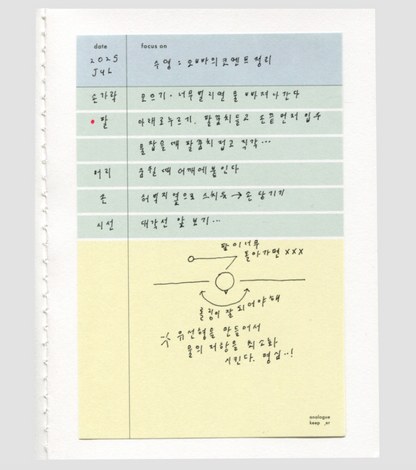 date
focus on
2025
JUL
수영 : 오빠의 코멘트 정리
손가락
모으기. 너무 벌리면 물 빠져 나간다
팔
아래로 누르기. 팔꿈치 들고 손끝 먼저 입수
물 잡을 때 팔꿈치 접고 직각...
머리
숨 쉴 때 어깨에 붙인다
손
허벅지 옆으로 스치듯 → 손 당기기
시선
대각선 앞 보기...
팔이 너무
돌아가면 xxx
롤링이 잘 되어야 해
유선형을 만들어서
물의 저항을 최소화
시킨다. 명심..!
analogue
keep